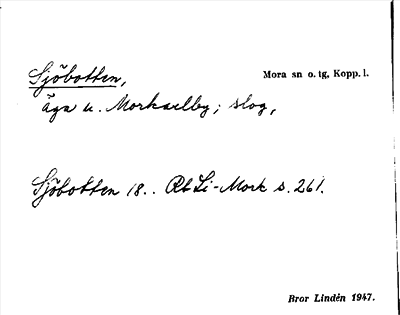 Sjöbotten,
Mora sn o. tg, Kopp. l.
äga u. Morkarlby; slog,
Sjöbotten 18.. Rb Li-Mork s. 261.
Bror Lindén 1947.